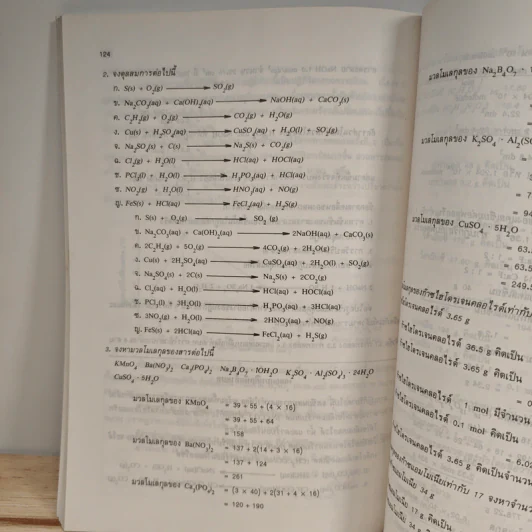 124
2. จงดุลสมการต่อไปนี้
ก. S(s) + O₂(g) ⟶ SO₂(g)
ข. Na₂CO₃(aq) + Ca(OH)₂(aq) ⟶ NaOH(aq) + CaCO₃(s)
ค. C₂H₂(g) + O₂(g) ⟶ CO₂(g) + H₂O(g)
ง. Cu(s) + H₂SO₄(aq) ⟶ CuSO₄(aq) + H₂O(l) + SO₂(g)
จ. Na₂SO₄(s) + C(s) ⟶ Na₂S(s) + CO₂(g)
ฉ. Cl₂(g) + H₂O(l) ⟶ HCl(aq) + HOCl(aq)
ช. PCl₅(l) + H₂O(l) ⟶ H₃PO₄(aq) + HCl(aq)
ซ. NO₂(g) + H₂O(l) ⟶ HNO₃(aq) + NO(g)
ญ. FeS(s) + HCl(aq) ⟶ FeCl₂(aq) + H₂S(g)
ก. S(s) + O₂(g) ⟶ SO₂ (g)
ข. Na₂CO₃(aq) + Ca(OH)₂(aq) ⟶ 2NaOH(aq) + CaCO₃(s)
ค. 2C₂H₂(g) + 5O₂(g) ⟶ 4CO₂(g) + 2H₂O(g)
ง. Cu(s) + 2H₂SO₄(aq) ⟶ CuSO₄(aq) + 2H₂O(l) + SO₂(g)
จ. Na₂SO₄(s) + 2C(s) ⟶ Na₂S(s) + 2CO₂(g)
ฉ. Cl₂(aq) + H₂O(l) ⟶ HCl(aq) + HOCl(aq)
ช. + 3H₂O(l) ⟶ H₃PO₄(aq) + 3HCl(aq)
ซ. 3NO₂(g) + H₂O(l) ⟶ 2HNO₃(aq) + NO(g)
ญ. FeS(s) + 2HCl(aq) ⟶ FeCl₂(aq) + H₂S(g)
3. จงหามวลโมเลกุลของสารต่อไปนี้
KMnO₄ Ba(NO₃)₂ Ca₃(PO₄)₂ Na₂B₄O₇ · 10H₂O K₂SO₄ · Al₂(SO₄)₃ · 24H₂O
CuSO₄ · 5H₂O
มวลโมเลกุลของ KMnO₄ = 39 + 55 + (4 × 16)
= 39 + 55 + 64
= 158
มวลโมเลกุลของ Ba(NO₃)₂ = 137 + 2(14 + 3 × 16)
= 137 + 124
= 261
มวลโมเลกุลของ Ca₃(PO₄)₂ = (3 × 40) + 2(31 + 4 × 16)
= 120 + 190
มวลโมเลกุลของ Na₂B₄O₇ ·
มวลโมเลกุลของ K₂SO₄ · Al₂(SO
มวลโมเลกุลของ CuSO₄ · 5H₂O
= 63.
= 63.5
= 249.5
3.65 g
36.5 g คิดเป็น
3.65 g คิดเป็น
1 mol มีจำนวน
0.1 mol คิดเป็น
= 6.0
3.65 g คิดเป็นจำนวน
34 g
17 g คิดเป็น
34 g